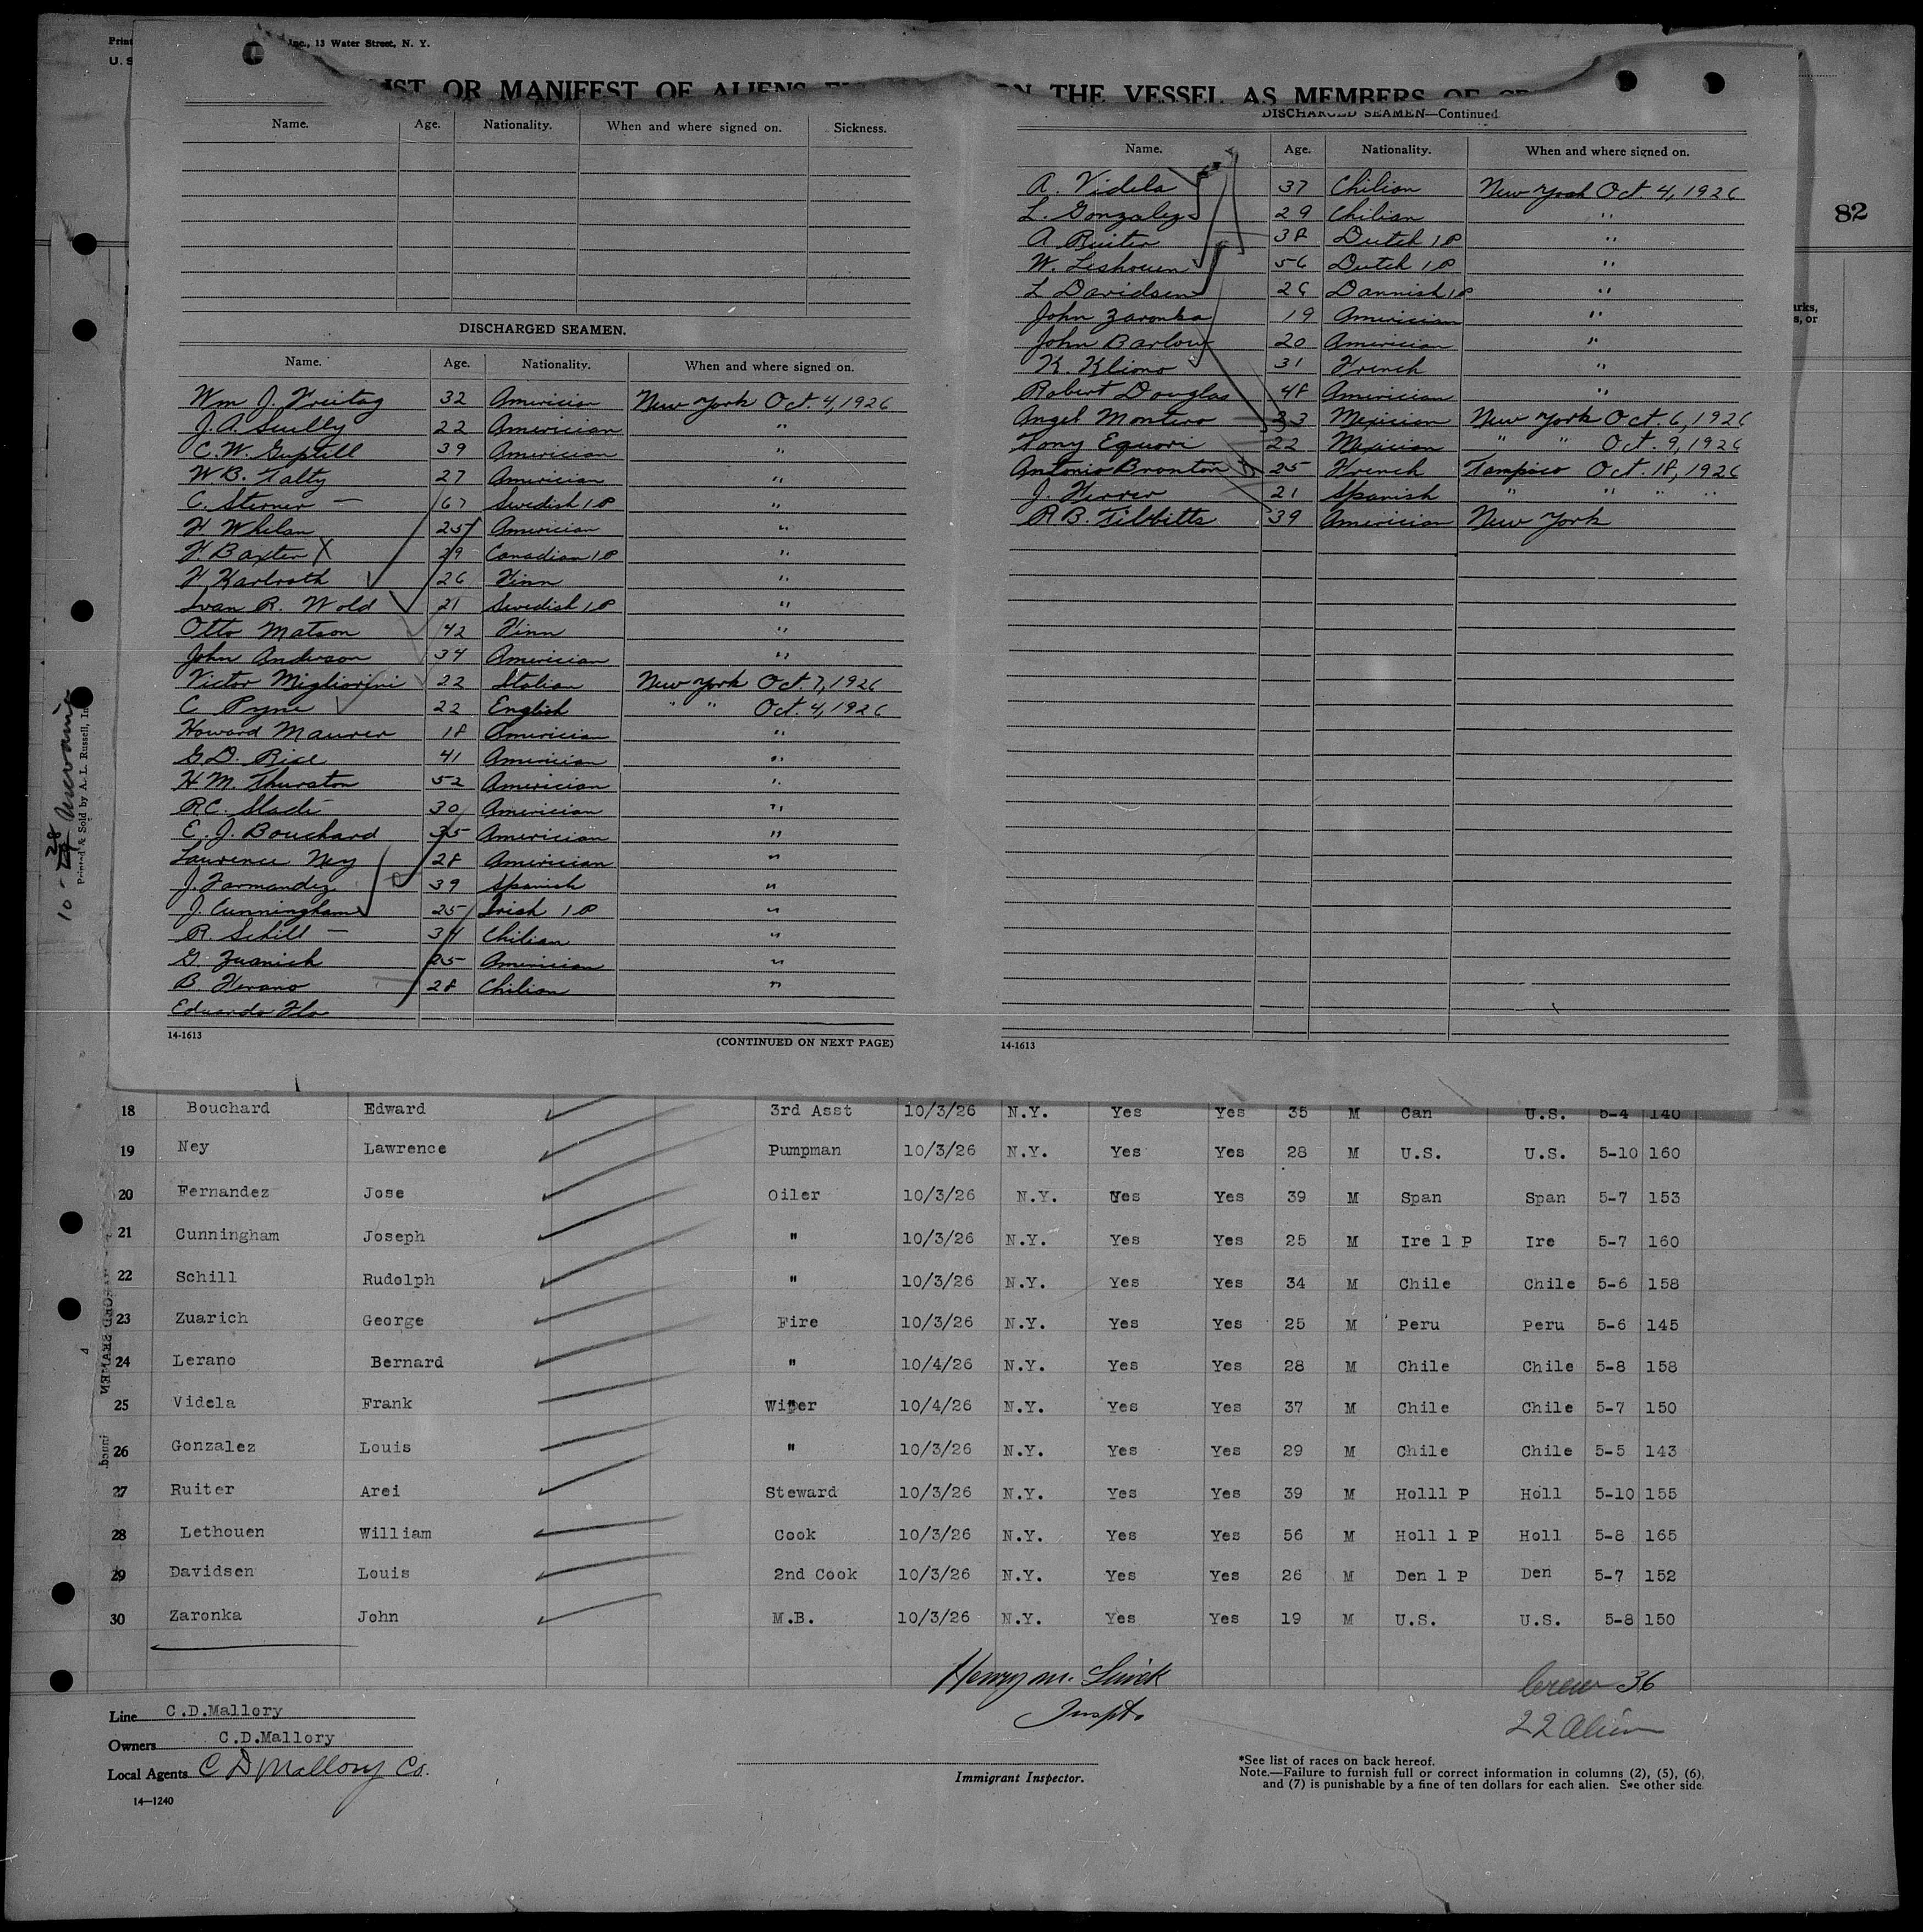 Inc., 13 Water Street, N. Y.
U. S
LIST OR MANIFEST OF ALIENS ON THE VESSEL AS MEMBERS OF
Name. Age. Nationality. When and where signed on. Sickness.
DISCHARGED SEAMEN.
Name. Age. Nationality. When and where signed on.
Wm J. Freitag 32 Americian New York Oct. 4, 1926
J. A. Scully 22 Americian "
C. W. Guptill 39 Americian "
W B. Talty 27 Americian "
C. Sterner — 67 Swedish 1 P "
H Whelan 25 Americian "
H. Baxter X 29 Canadian 1 P "
H. Karlroth 26 Finn "
Ivan R. Wold 21 Swedish 1 P "
Otto Matson 42 Finn "
John Anderson 34 Americian "
Victor Migliorini 22 Italian New York Oct. 7, 1926
C Pyne 22 English " " Oct. 4, 1926
Howard Maurer 18 Americian "
G. D. Rice 41 Americian "
H. M. Thurston 52 Americian "
R C. Slade 30 Americian "
E. J. Bouchard 35 Americian "
Laurence Ney 28 Americian "
J. Farmandez 39 Spanish "
J. Cunningham 25 Irish 1 P "
R. Schill — 34 Chilian "
G. Zuanich 25 Americian "
B. Herano 28 Chilian "
Eduardo Flo
14-1613 (CONTINUED ON NEXT PAGE)
DISCHARGED SEAMEN—Continued
Name. Age. Nationality. When and where signed on.
A. Videla 37 Chilian New York Oct. 4, 1926
L. Gonzalez 29 Chilian "
A Ruiter 38 Dutch 1 P "
W. Leshouen 56 Dutch 1 P "
L Davidsen 26 Dannish 1 P "
John Zaronka 19 Americian "
John Barlow 20 Americian "
K. Kliono 31 French "
Robert Douglas 48 Americian "
Angel Montero 33 Mexician New York Oct. 6, 1926
Tony Equori 22 Mexician " " Oct. 9, 1926
Antonio Bronton 25 French Tampico Oct. 18, 1926
J. Ferrer 21 Spanish " " " "
R B. Tibbitts 39 Americian New York
14-1613
82
arks,
s, or
Printed & Sold by A. L. Russell, In
18 Bouchard Edward 3rd Asst 10/3/26 N.Y. Yes Yes 35 M Can U.S. 5-4 140
19 Ney Lawrence Pumpman 10/3/26 N.Y. Yes Yes 28 M U.S. U.S. 5-10 160
20 Fernandez Jose Oiler 10/3/26 N.Y. Yes Yes 39 M Span Span 5-7 153
21 Cunningham Joseph " 10/3/26 N.Y. Yes Yes 25 M Ire 1 P Ire 5-7 160
22 Schill Rudolph " 10/3/26 N.Y. Yes Yes 34 M Chile Chile 5-6 158
23 Zuarich George Fire 10/3/26 N.Y. Yes Yes 25 M Peru Peru 5-6 145
24 Lerano Bernard " 10/4/26 N.Y. Yes Yes 28 M Chile Chile 5-8 158
25 Videla Frank Wiper 10/4/26 N.Y. Yes Yes 37 M Chile Chile 5-7 150
26 Gonzalez Louis " 10/3/26 N.Y. Yes Yes 29 M Chile Chile 5-5 143
27 Ruiter Arei Steward 10/3/26 N.Y. Yes Yes 39 M Holl1 P Holl 5-10 155
28 Lethouen William Cook 10/3/26 N.Y. Yes Yes 56 M Holl 1 P Holl 5-8 165
29 Davidsen Louis 2nd Cook 10/3/26 N.Y. Yes Yes 26 M Den 1 P Den 5-7 152
30 Zaronka John M.B. 10/3/26 N.Y. Yes Yes 19 M U.S. U.S. 5-8 150
Henry M.
Inspt.
Crew 36
22 Alien
Line C.D.Mallory
Owners C.D.Mallory
Local Agents C D Mallory Co.
14—1240
Immigrant Inspector.
*See list of races on back hereof.
Note.—Failure to furnish full or correct information in columns (2), (5), (6),
and (7) is punishable by a fine of ten dollars for each alien. See other side.